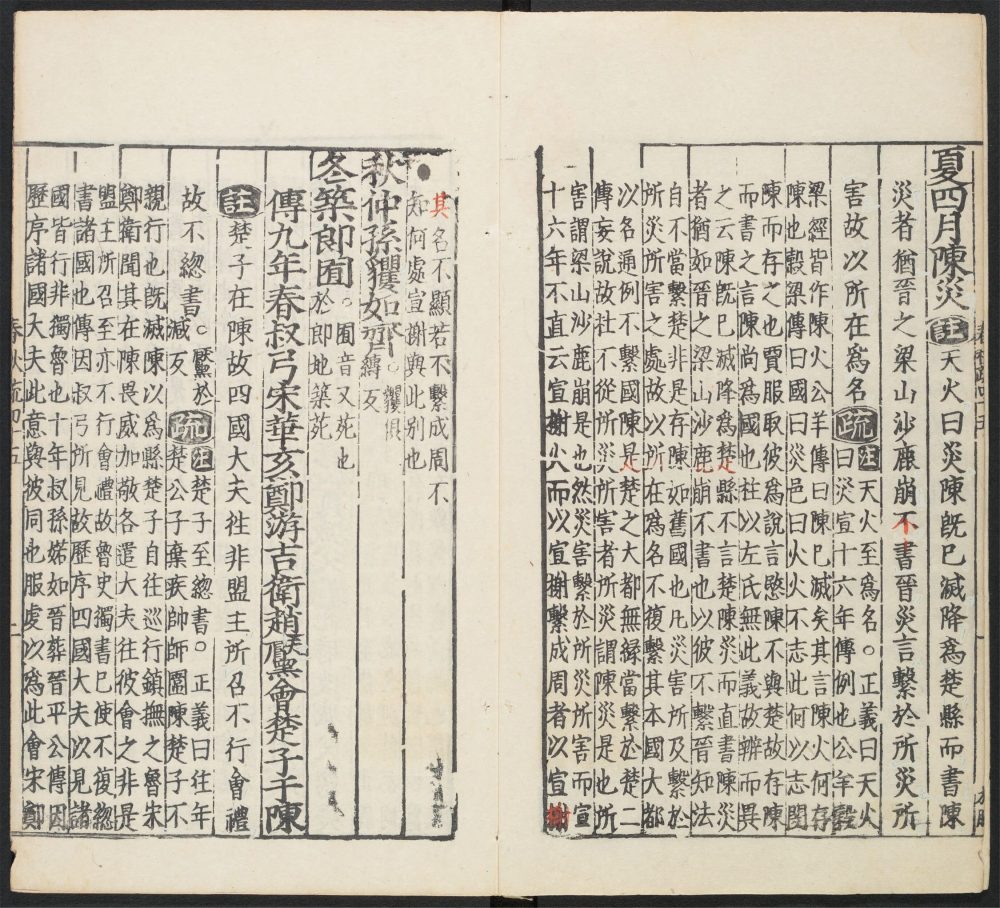 夏四月陳災註天火曰災陳既巳滅降爲楚縣而書陳
災者猶晉之梁山沙鹿崩不書晉災言繫於所災所
害故以所在爲名疏註天火至爲名○正義曰天火
曰災宣十六年傳例也公羊穀
梁經皆作陳火公羊傳曰陳巳滅矣其言陳火何存
陳也穀梁傳曰國曰災邑曰火火不志此何以志閔
陳而存之也賈服取彼爲說言愍陳不與楚故存陳
而書之言陳尚爲國也杜以左氏無此義故辨而異
之云陳既巳滅降爲楚縣不言楚陳災而直書陳災
者猶如晉之梁山沙鹿崩不書也以彼不繫晉知法
自不當繫楚非是存陳如舊國也凡災害所及繫於
所災所害之處故以所在爲名不復繫其本國大都
以名通例不繫國陳是楚之大都無緣當繫於楚二
傳妄說故杜不從所災所害者所災謂陳災是也所
害謂梁山沙鹿崩是也然災害繫於所災所害而宣
十六年不直云宣榭火而以宣榭繫成周者以宣榭
其名不顯若不繫成周不
知何處宣榭與此別也
秋仲孫貜如齊○貜俱縛反
冬築郎囿○囿音又苑也於郎地築苑
傳九年春叔弓宋華亥鄭游吉衛趙黶會楚子于陳
註楚子在陳故四國大夫往非盟主所召不行會禮
故不緫書○黶於減反疏註楚子至緫書○正義曰往年楚公子棄疾帥師圍陳楚子不
親行也既滅陳以爲縣楚子自往巡行鎮撫之魯宋
鄭衛聞其在陳畏威加敬各遣大夫往彼會之非是
盟主所召至亦不行會禮故魯史獨書巳使不復緫
書諸國也傳因叔弓所見故歷序四國大夫以見諸
國皆行非獨魯也十年叔孫婼如晉葬晉平公傳因
歷序諸國大夫此意與彼同也服虔以爲此會宋鄭